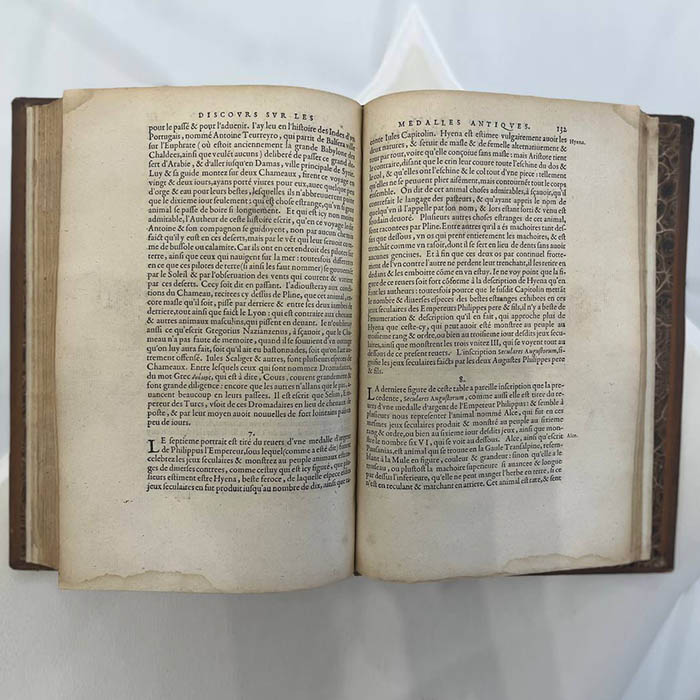 DISCOVRS SVR LES
pour le passé & pour l'aduenir. I'ay leu en l'histoire des Indes d'vn
Portugais, nommé Antoine Teurreyro, qui partit de Balsera ville
sur l'Euphrate (où estoit anciennement la grande Babylone des
Chaldees, ainsi que veulẽt aucuns) deliberé de passer ce grand de-
sert d'Arabie, & d'aller iusqu'en Damas, ville principale de Syrie.
Luy & sa guide montez sur deux Chameaux, firent ce voyage en
vingt & deux iours, ayans porté viures pour eux, auec quelque peu
d'orge & eau pour leurs bestes, lesquelles ils n'abbreuuerent
que le dixieme iour seulement: qui est chose estrange, qu'vn si grãd
animal se passe de boire si longuement. Et qui est icy non moins
admirable, l'Autheur de ceste histoire escrit, qu'en ce voyage ledit
Antoine & son compagnon se guidoyent, non par aucun chemin
faict qu'il y eust en ces deserts, mais par le vẽt qui leur seruoit com-
me de bussole ou calamite. Car ils ont en cest endroit des pilotes de
terre, ainsi que ceux qui nauigent sur la mer: toutesfois differents
en ce que ces pilotes de terre (si ainsi les faut nommer) se gouuernẽt
par le Soleil & par l'obseruation des vents qui courent & varient
par ces deserts. Cecy soit dit en passant. I'adiousteray aux condi-
tions du Chameau, recitees cy dessus de Pline, que cet animal, en-
core masle qu'il soit, pisse par derriere & entre les deux iambes de
derriere, tout ainsi que faict le Lyon: qui est au contraire des chatons
& autres animaux masculins, qui passent en deuant. Ie n'oublieray
aussi ce qu'escrit Gregorius Nazianzenus, à sçauoir, que le Cha-
meau n'a pas faute de memoire, quand il se souuient d'vn outrage
qu'on luy aura fait, soit qu'il ait eu bastonnades, soit qu'on l'ait au-
trement offensé. Iules Scaliger & autres, font plusieurs especes de
Chameaux. Entre lesquels ceux qui sont nommez Dromadaires,
du mot Grec qui est à dire, Cours, courent grandement &
font grande diligence: encore que les autres n'aillent pas si tost, & a-
uancent beaucoup en leurs passees. Il est escrit que Selim, Em-
pereur des Turcs, vsoit de ces Dromadaires en lieu de cheuaux de
poste, & par leur moyen auoit nouuelles de fort lointain païs en
peu de iours.
7.
LE septieme portrait est tiré du reuers d'vne medalle d'argent
de Philippus l'Empereur, sous lequel (comme a esté dit) furent
celebrez les ieux seculaires & monstrez au peuple animaux estran-
ges de diuerses contrees, comme cestuy qui est icy figuré, que plu-
sieurs estiment estre Hyena, beste feroce, de laquelle espece esdits
ieux seculaires en fut produit iusqu'au nombre de dix, ainsi que ra-
MEDALLES ANTIQVES. 132
conte Iules Capitolin. Hyena est estimee vulgairement auoir les
Hyena.
deux natures, & seruir de masle & de femelle alternatiuement &
tour par tour, voire qu'elle conçoiue sans masle: mais Aristote tient
le contraire, disant que le crin leur coure toute l'eschine du dos &
le col, & qu'elles ont l'eschine & le col tout d'vne piece: tellement
qu'elles ne se peuuent plier aisément, mais contournẽt tout le corps
ensemble. On dit de cet animal choses admirables, à sçauoir, qu'il
contrefait le langage des pasteurs, & qu'ayant appris le nom de
quelqu'vn il l'appelle par son nom, & lors estant sorti est de luy
soudain deuoré. Plusieurs autres choses estranges de cet animal,
sont racontees par Pline. Entre autres qu'il a és machoires tant des-
sus que dessous, vn os qui prent entierement les machoires, & est
trenchãt comme vn rasoir, dont il se sert en lieu de dents sans auoir
aucunes gencines. Et à fin que ces deux os par continuel frotte-
ment de l'vn contre l'autre ne perdent leur trenchant, il les retire en
dedans & les emboitte cõme en vn estuy. Ie ne voy point que la fi-
gure de ce reuers soit fort cõforme à la description de Hyena qu'en
font les autheurs: toutesfois pource que le susdit Capitolin met le
nombre & diuerses especes des bestes estranges exhibees en ces
ieux seculaires des Empereurs Philippes pere & fils, il n'y a beste de
l'enumeration & description qu'il en fait, qui approche plus de
Hyena que ceste-cy, qui peut auoir esté monstree au peuple au
troisieme rang & ordre, ou bien au troisieme iour desdits ieux secu-
laires, ainsi que monstrent les trois vnitez III, qui se voyent tout au
dessous de ce present reuers. L'inscription Seculares Augustorum, si-
gnifie les ieux seculaires faicts par les deux Augustes Philippes pere
& fils.
8.
LA derniere figure de ceste table a pareille inscription que la pre-
cedente, Seculares Augustorum, comme aussi elle est tiree du re-
uers d'vne medalle d'argent de l'Empereur Philippus: & semble à
aucuns qu'elle represente l'animal nommé Alce, qui fut en ces
mesmes ieux seculaires produit & monstré au peuple au sixieme
rang & ordre, ou bien au sixieme iour desdits ieux, ainsi que mon-
stre le nombre six VI, qui se voit au dessous. Alce, ainsi qu'escrit
Alce.
Pausanias, est animal qui se trouue en la Gaule Transalpine, sem-
blant à la Mule en figure, couleur & grandeur: sinon qu'elle a le
museau, ou plustost la machoire superieure si auancee & longue
par dessus l'inferieure, qu'elle ne peut manger l'herbe en terre, si ce
n'est en reculant & marchant en arriere. Cet animal est rare, & sent